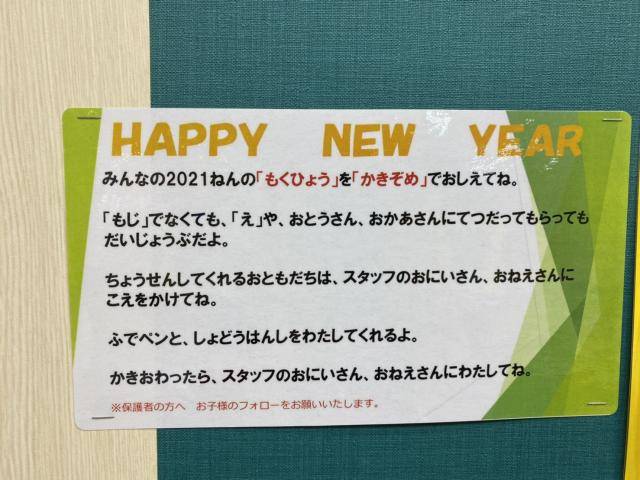 HAPPY NEW YEAR
みんなの2021ねんの「もくひょう」を「かきぞめ」でおしえてね。
「もじ」でなくても、「え」や、おとうさん、おかあさんにてつだってもらっても
だいじょうぶだよ。
ちょうせんしてくれるおともだちは、スタッフのおにいさん、おねえさんに
こえをかけてね。
ふでペンと、しょどうはんしをわたしてくれるよ。
かきおわったら、スタッフのおにいさん、おねえさんにわたしてね。
※保護者の方へ お子様のフォローをお願いいたします。